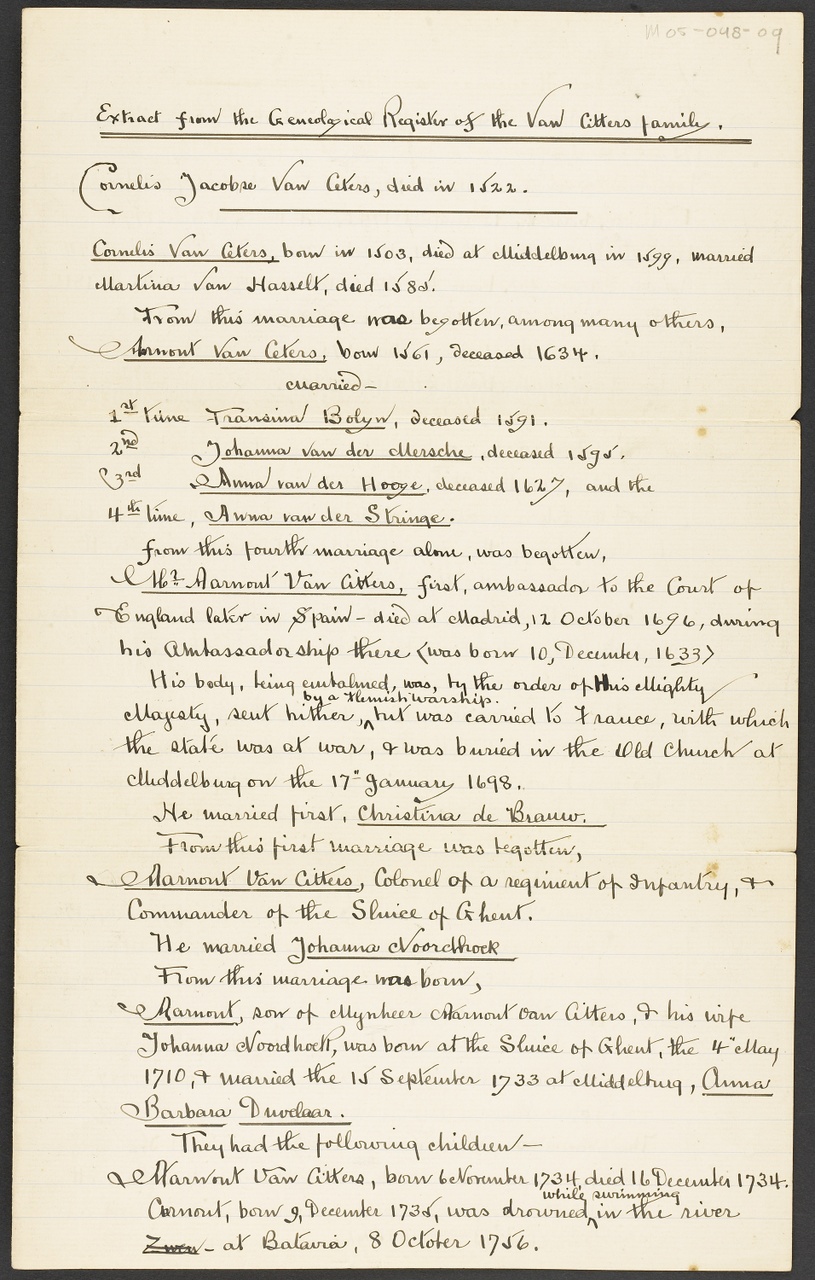 M05-048-09
Extract from the Geneological Register of the Van Citters family.
Cornelis Jacobse Van Ceters, died in 1522.
Cornelis Van Ceters, born in 1503, died at Middelburg in 1599, married
Martina Van Hasselt, died 1585.
From this marriage was begotten, among many others,
Arnout Van Ceters, born 1561, deceased 1634.
married—
1st time Fransina Bolyn, deceased 1591.
2nd Johanna van der Mersche, deceased 1595.
3rd Anna van der Hooge, deceased 1627, and the
4th time, Anna van der Stringe.
from this fourth marriage alone, was begotten,
Mr. Aarnout Van Citters, first, ambassador to the Court of
England later in Spain – died at Madrid, 12 October 1696, during
his Ambassadorship there (was born 10, December, 1633)
His body, being embalmed, was, by the order of His Mighty
by a Flemish Warship.
Majesty, sent hither, but was carried to France, with which
the state was at war, & was buried in the Old Church at
Middelburg on the 17" January 1698.
He married first, Christina de Brauw.
From this first marriage was begotten,
Aarnout Van Citters, Colonel of a regiment of Infantry, &
Commander of the Sluice of Ghent.
He married Johanna Noordhoek
From this marriage was born,
Aarnout, son of Mynheer Aarnout van Citters, & his wife
Johanna Noordhoek, was born at the Sluice of Ghent, the 4" May
1710, & married the 15 September 1733 at Middelburg, Anna
Barbara Duvelaar.
They had the following children—
Aarnout Van Citters, born 6 November 1734, died 16 December 1734.
while swimming
Aarnout, born 9, December 1735, was drowned, in the river
at Batavia, 8 October 1756.